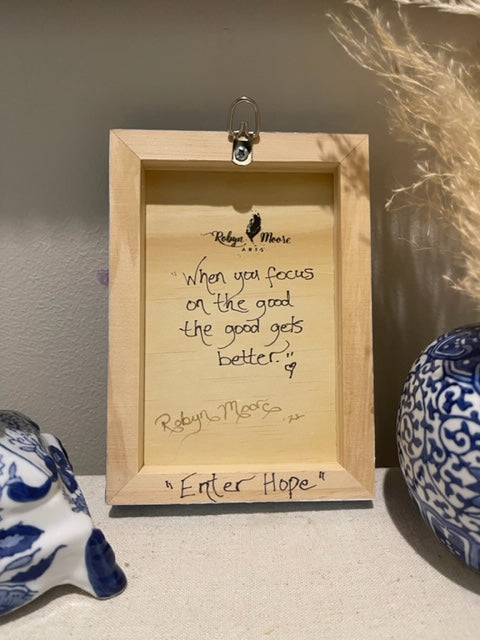 Robyn Moore
ARTS
"When you focus
on the good
the good gets
better."
Robyn Moore
"Enter Hope"